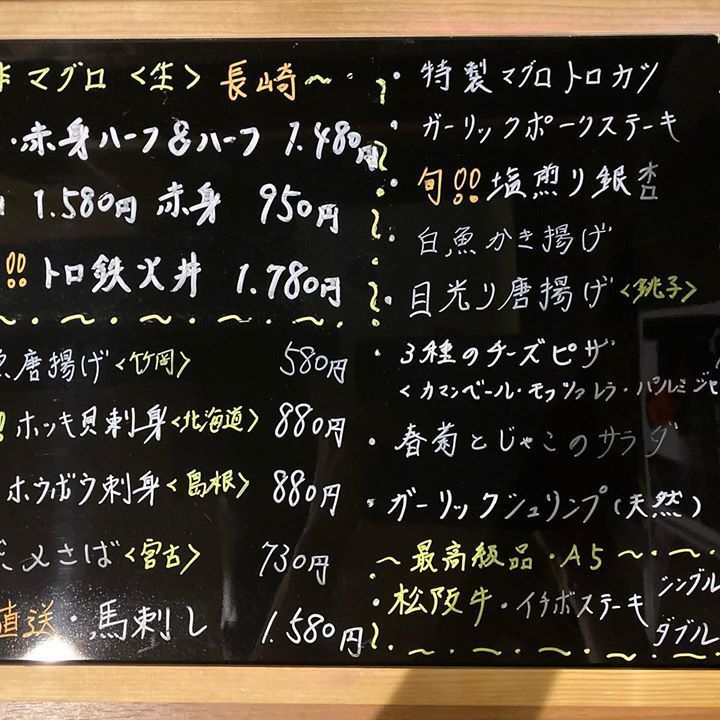 マグロ〈生〉長崎〜
・赤身ハーフ&ハーフ 1.480円
1.580円 赤身 950円
!! トロ鉄火丼 1.780円
〜・〜・〜・〜・〜・〜
唐揚げ〈竹岡〉 580円
ホッキ貝刺身〈北海道〉 880円
ホウボウ刺身〈島根〉 880円
〆さば〈宮古〉 730円
直送・馬刺し 1.580円
・特製マグロトロカツ
・ガーリックポークステーキ
・旬!!塩煎り銀杏
・白魚かき揚げ
・目光り唐揚げ〈銚子〉
・3種のチーズピザ
〈カマンベール・モッツァレラ・パルミジャ
・春菊とじゃこのサラダ
・ガーリックシュリンプ(天然)
〜最高級品・A5〜・〜・〜
・松阪牛・イチボステーキ シングル
ダブル